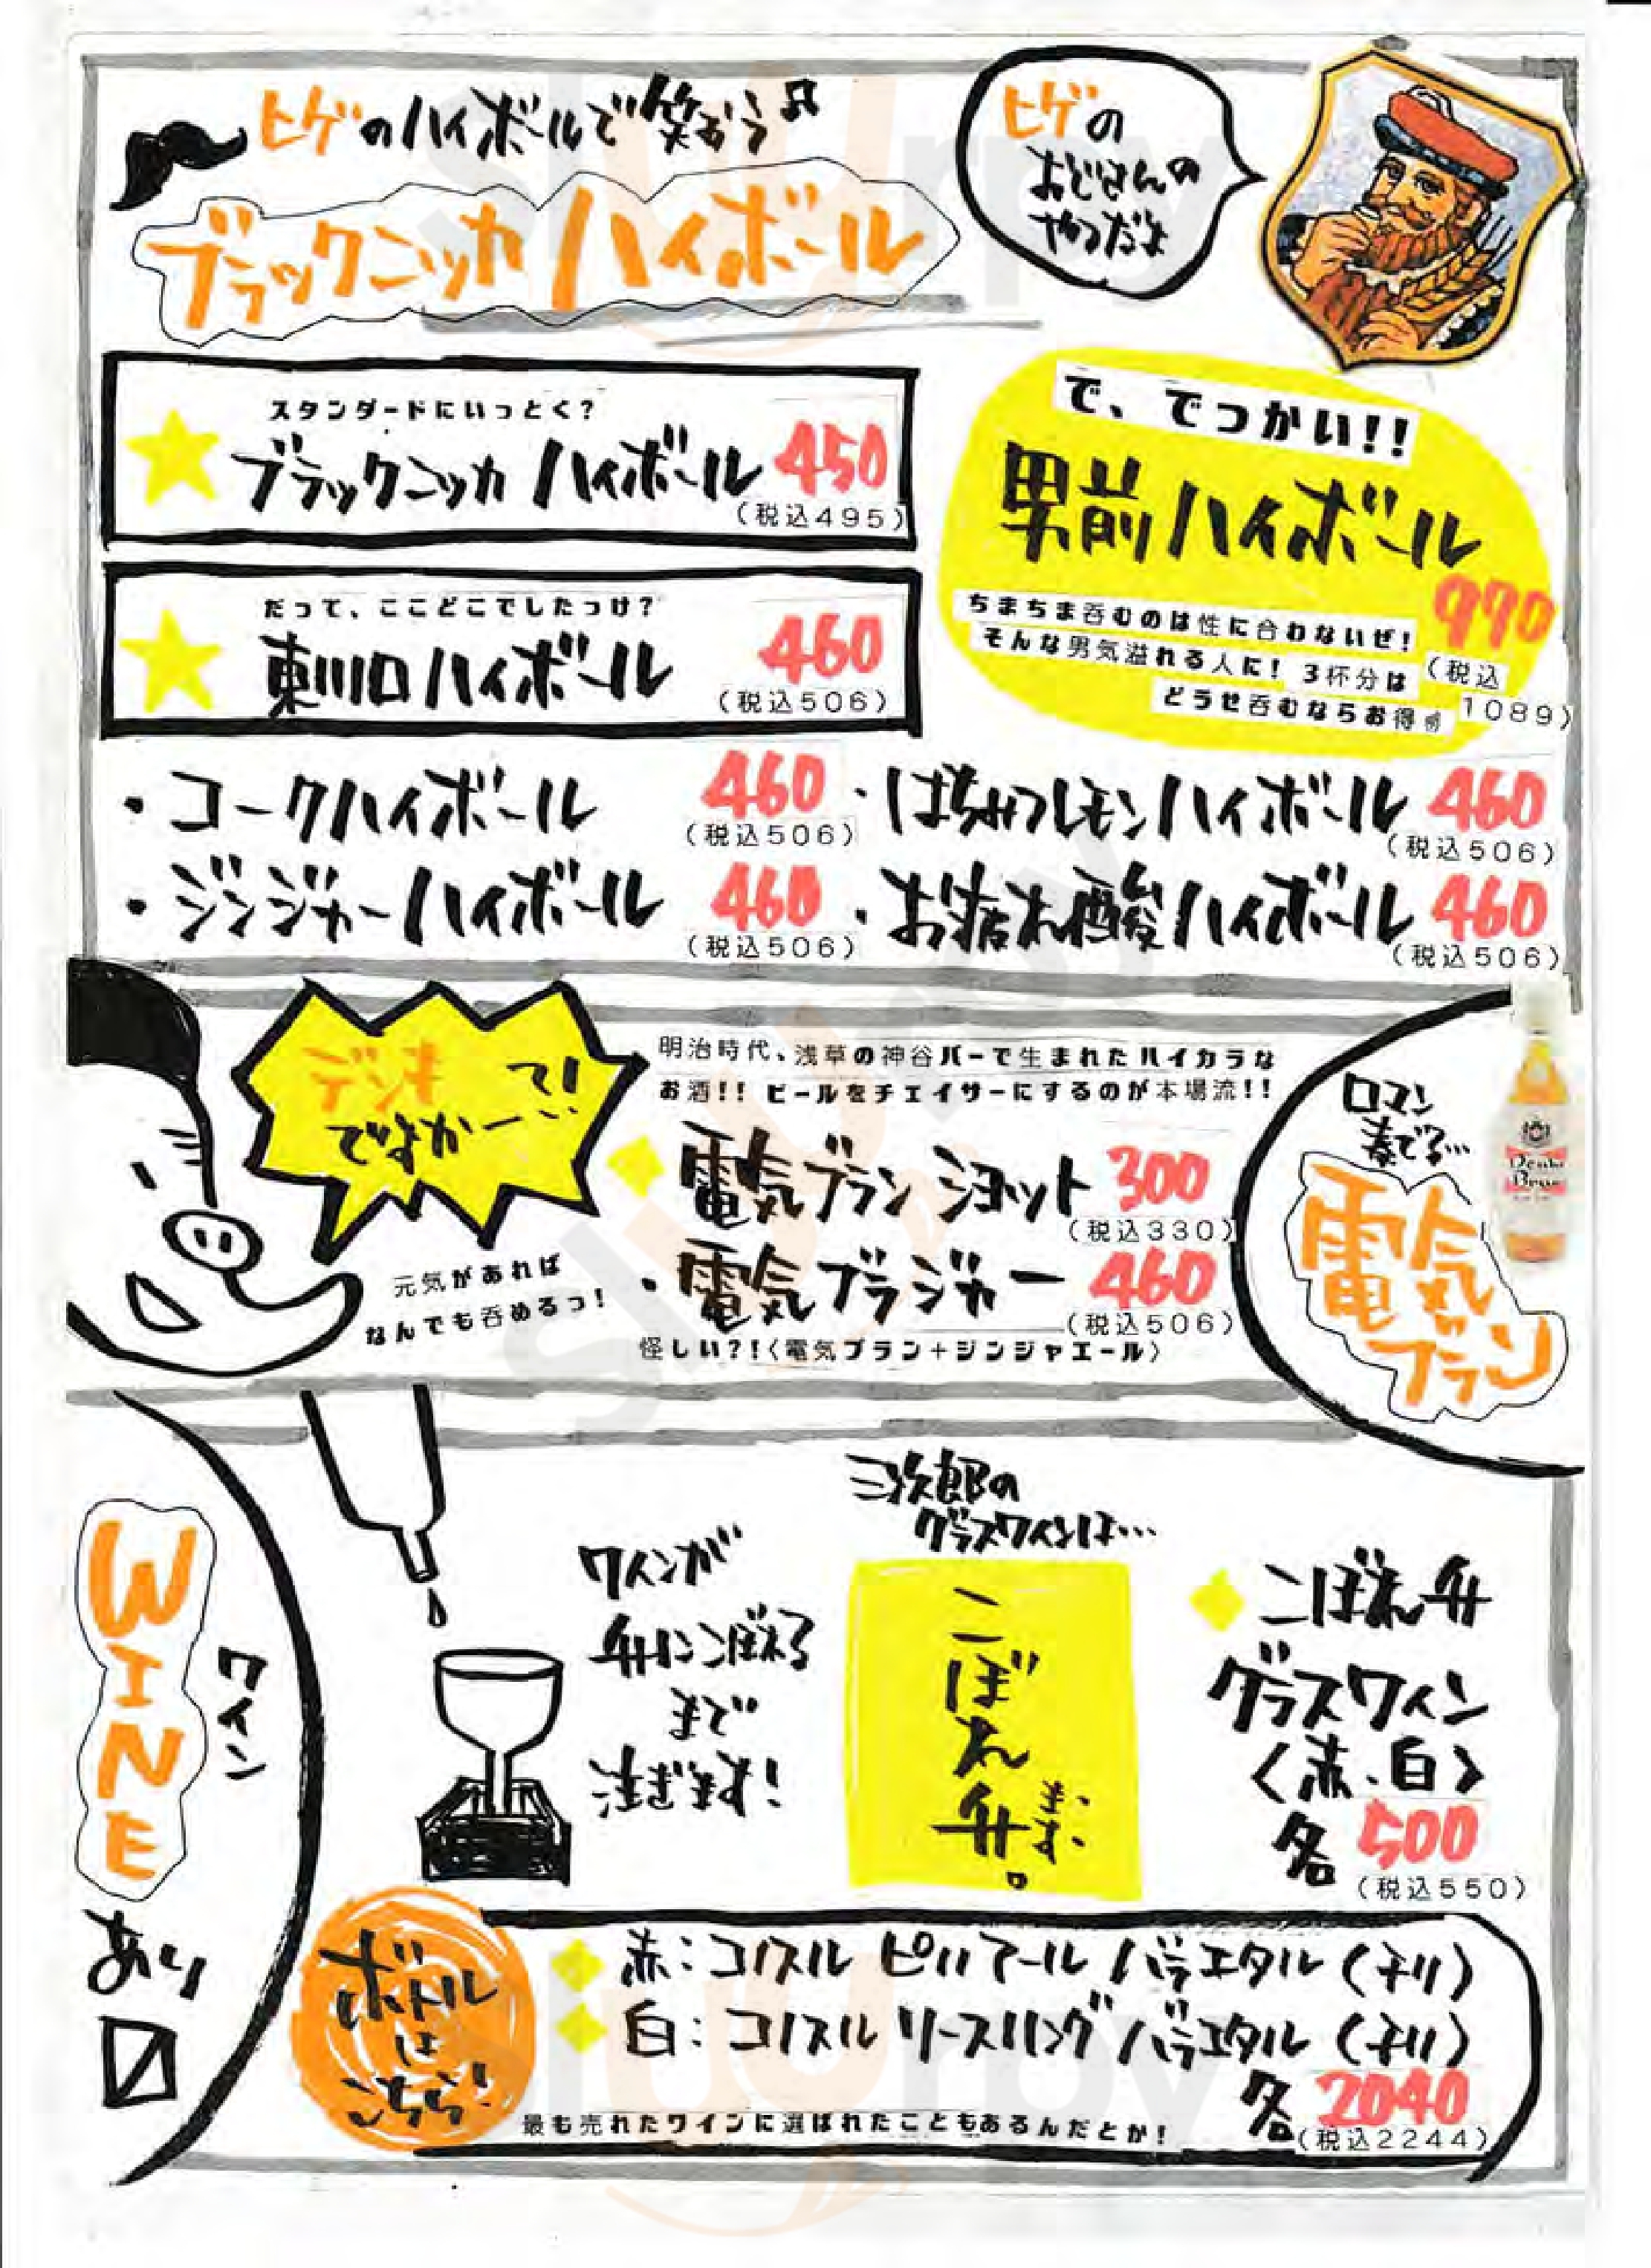 ヒゲのハイボールで笑おう♫
ブラックニッカ ハイボール
ヒゲの
おじさんの
やつだよ
スタンダードにいっとく?
ブラックニッカ ハイボール 450
(税込495)
だって、ここどこでしたっけ?
東川口ハイボール 460
(税込506)
で、でっかい!!
男前ハイボール
ちまちま呑むのは性に合わないぜ!
そんな男気溢れる人に! 3杯分は
どうせ呑むならお得
(税込
1089)
・コークハイボール 460
(税込506)
・はちみつレモンハイボール 460
(税込506)
・ジンジャーハイボール 460
(税込506)
・お疲れ酸ハイボール 460
(税込506)
デンキ
ですかーって!
元気があれば
なんでも呑めるっ!
明治時代、浅草の神谷バーで生まれたハイカラな
お酒!! ビールをチェイサーにするのが本場流!!
電気ブラン ショット 300
(税込330)
・電気ブラジャー 460
(税込506)
怪しい?!〈電気ブラン+ジンジャエール〉
ロマン
奏でる…
電気
ブラン
Denki
Bran
WINE
ワイン
あり
〼
ワインが
升にこぼれる
まで
注ぎます!
三次郎の
グラスワインは…
こぼれ升。
ます、
こぼれ升
グラスワイン
〈赤・白〉
各 500
(税込550)
ボトル
は
こちら!
赤:コノスル ピノノアール バラエタル (チリ)
白:コノスル リースリング バラエタル (チリ)
各 2040
(税込2244)
最も売れたワインに選ばれたこともあるんだとか!
sluurpy
sluurpy
sluurpy